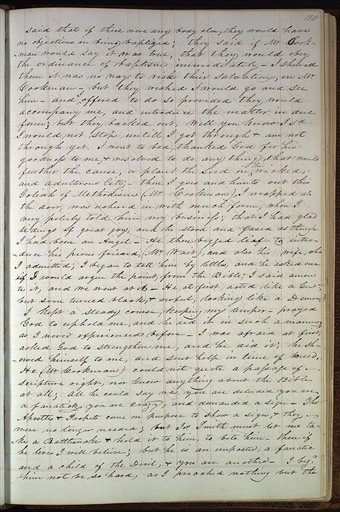 said that if there were any body else, they would have
no objections in being baptized; they said if Mr Cook-
man would say it was true, that they would obey
the ordinance of baptism immediately – I showed
them it was no way to risk their salvation, on Mr
Cookman – but they wished I would go and see
him – and offered to do so provided they would
accompany me, and introduce the matter in due
form; but they would not. Well you know I said
I would not stop until I got through & am not
through yet. I went to bed, thanked God for his
goodness to me & resolved to do any thing, that would
further the cause, or plant the Seed in this wicked,
and adulterous City. – Then I goes and hunts out this
Goliah of Methodism, (Mr Cookman) I wrapped at
the door, was ushered in with much form, when I
very politely told him my business; that I had glad
tidings of great joy, and he stood and gased as though
I had been an Angel – He then begged leaf to intro-
duce his pious friend, Mr Ward, and also his wife, &c
I admitted; I began to tell him by little, and he asked me
if I would argue the point from the Bible; I said amen
to it, and we went at it – He at first acted like a Gent
but soon turned black, & awful, looking like a Demon,
I kept a steady course, keeping my temper – prayed
God to uphold me, and he did so in such a manner
as I never experienced before – I was afraid at first,
asked God to strengthen me, and he did it; he sh-
owed himself to me, and sent help in time of need,
He (Mr Cookman) could not quote a passage of
scripture right, nor knew anything about the Bible
at all; All he could say was, you are deluded, you are
a fanatick, you are crazy; and demanded a sign – The
Apostles & Prophets came on purpose to show a sign, & they
were no longer needed; but Jo Smith must let me ta-
ke a Rattlesnake & hold it to him, to bite him – then if
he lives I will believe; but he is an impostor, a fanatic
and a child of the Devil, & you are another – I beg'd
him not be so hard, as I preached nothing but the